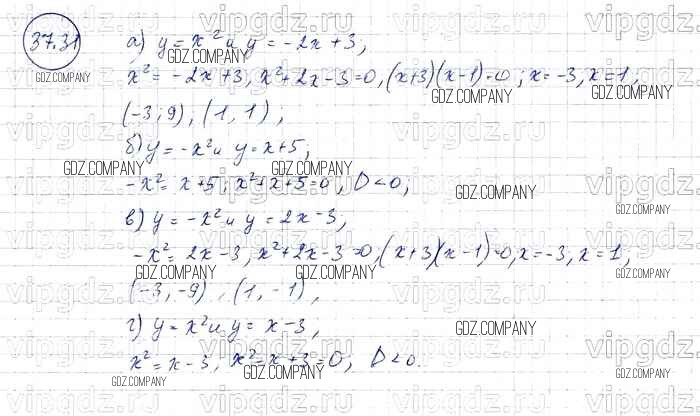 37.31
а) y = x² и y = -2x + 3,
x² = -2x+3, x²+2x-3=0, (x+3)(x-1)=0; x=-3, x=1,
(-3; 9), (1, 1);
б) y = -x² и y = x+5;
-x² = x+5; x²+x+5=0, D<0;
в) y = -x² и y = 2x-3;
-x² = 2x-3, x²+2x-3=0, (x+3)(x-1)=0, x=-3, x=1;
(-3, -9), (1, -1),
г) y = x² и y = x-3,
x² = x-3, x²-x+3=0; D<0.